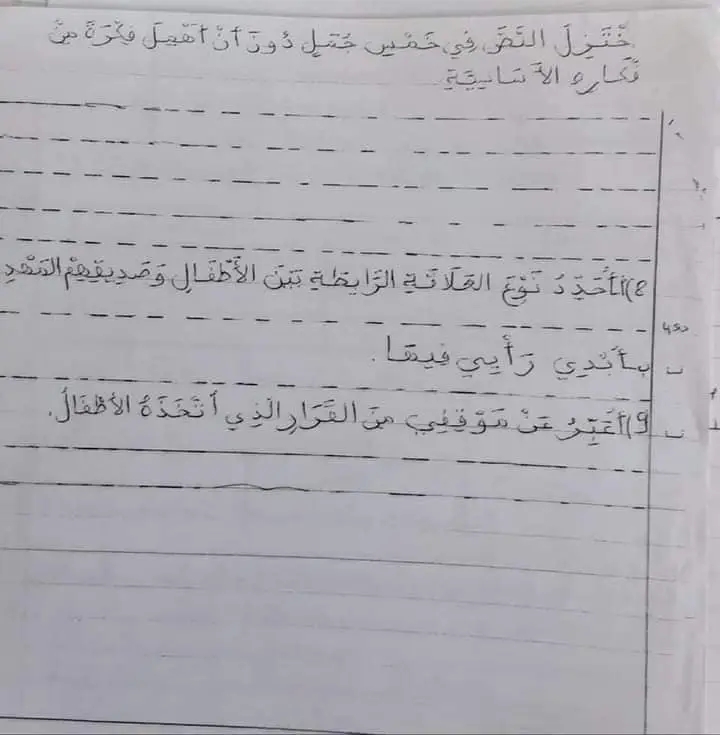 خْتَزِلُ النَّصَّ فِي خَمْسِ جُمَلٍ دُونَ أَنْ أُهْمِلَ فِكْرَةً مِنْ
فْكَارِهِ الأَسَاسِيَّةِ
8)أ أُحَدِّدُ نَوْعَ العَلَاقَةِ الرَّابِطَةِ بَيْنَ الأَطْفَالِ وَصَدِيقِهِمْ
ب أُبْدِي رَأْيِي فِيهَا.
9)أُعَبِّرُ عَنْ مَوْقِفِي مِنَ القَرَارِ الَّذِي اتَّخَذَهُ الأَطْفَالُ.